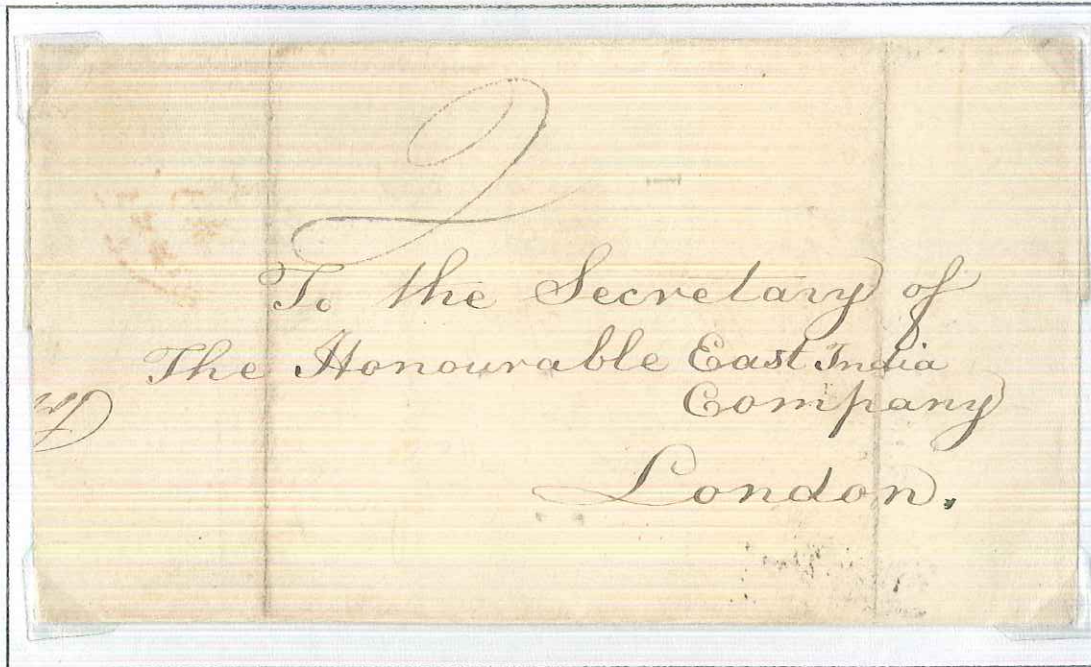 2
To the Secretary of
The Honourable East India
Company
London.